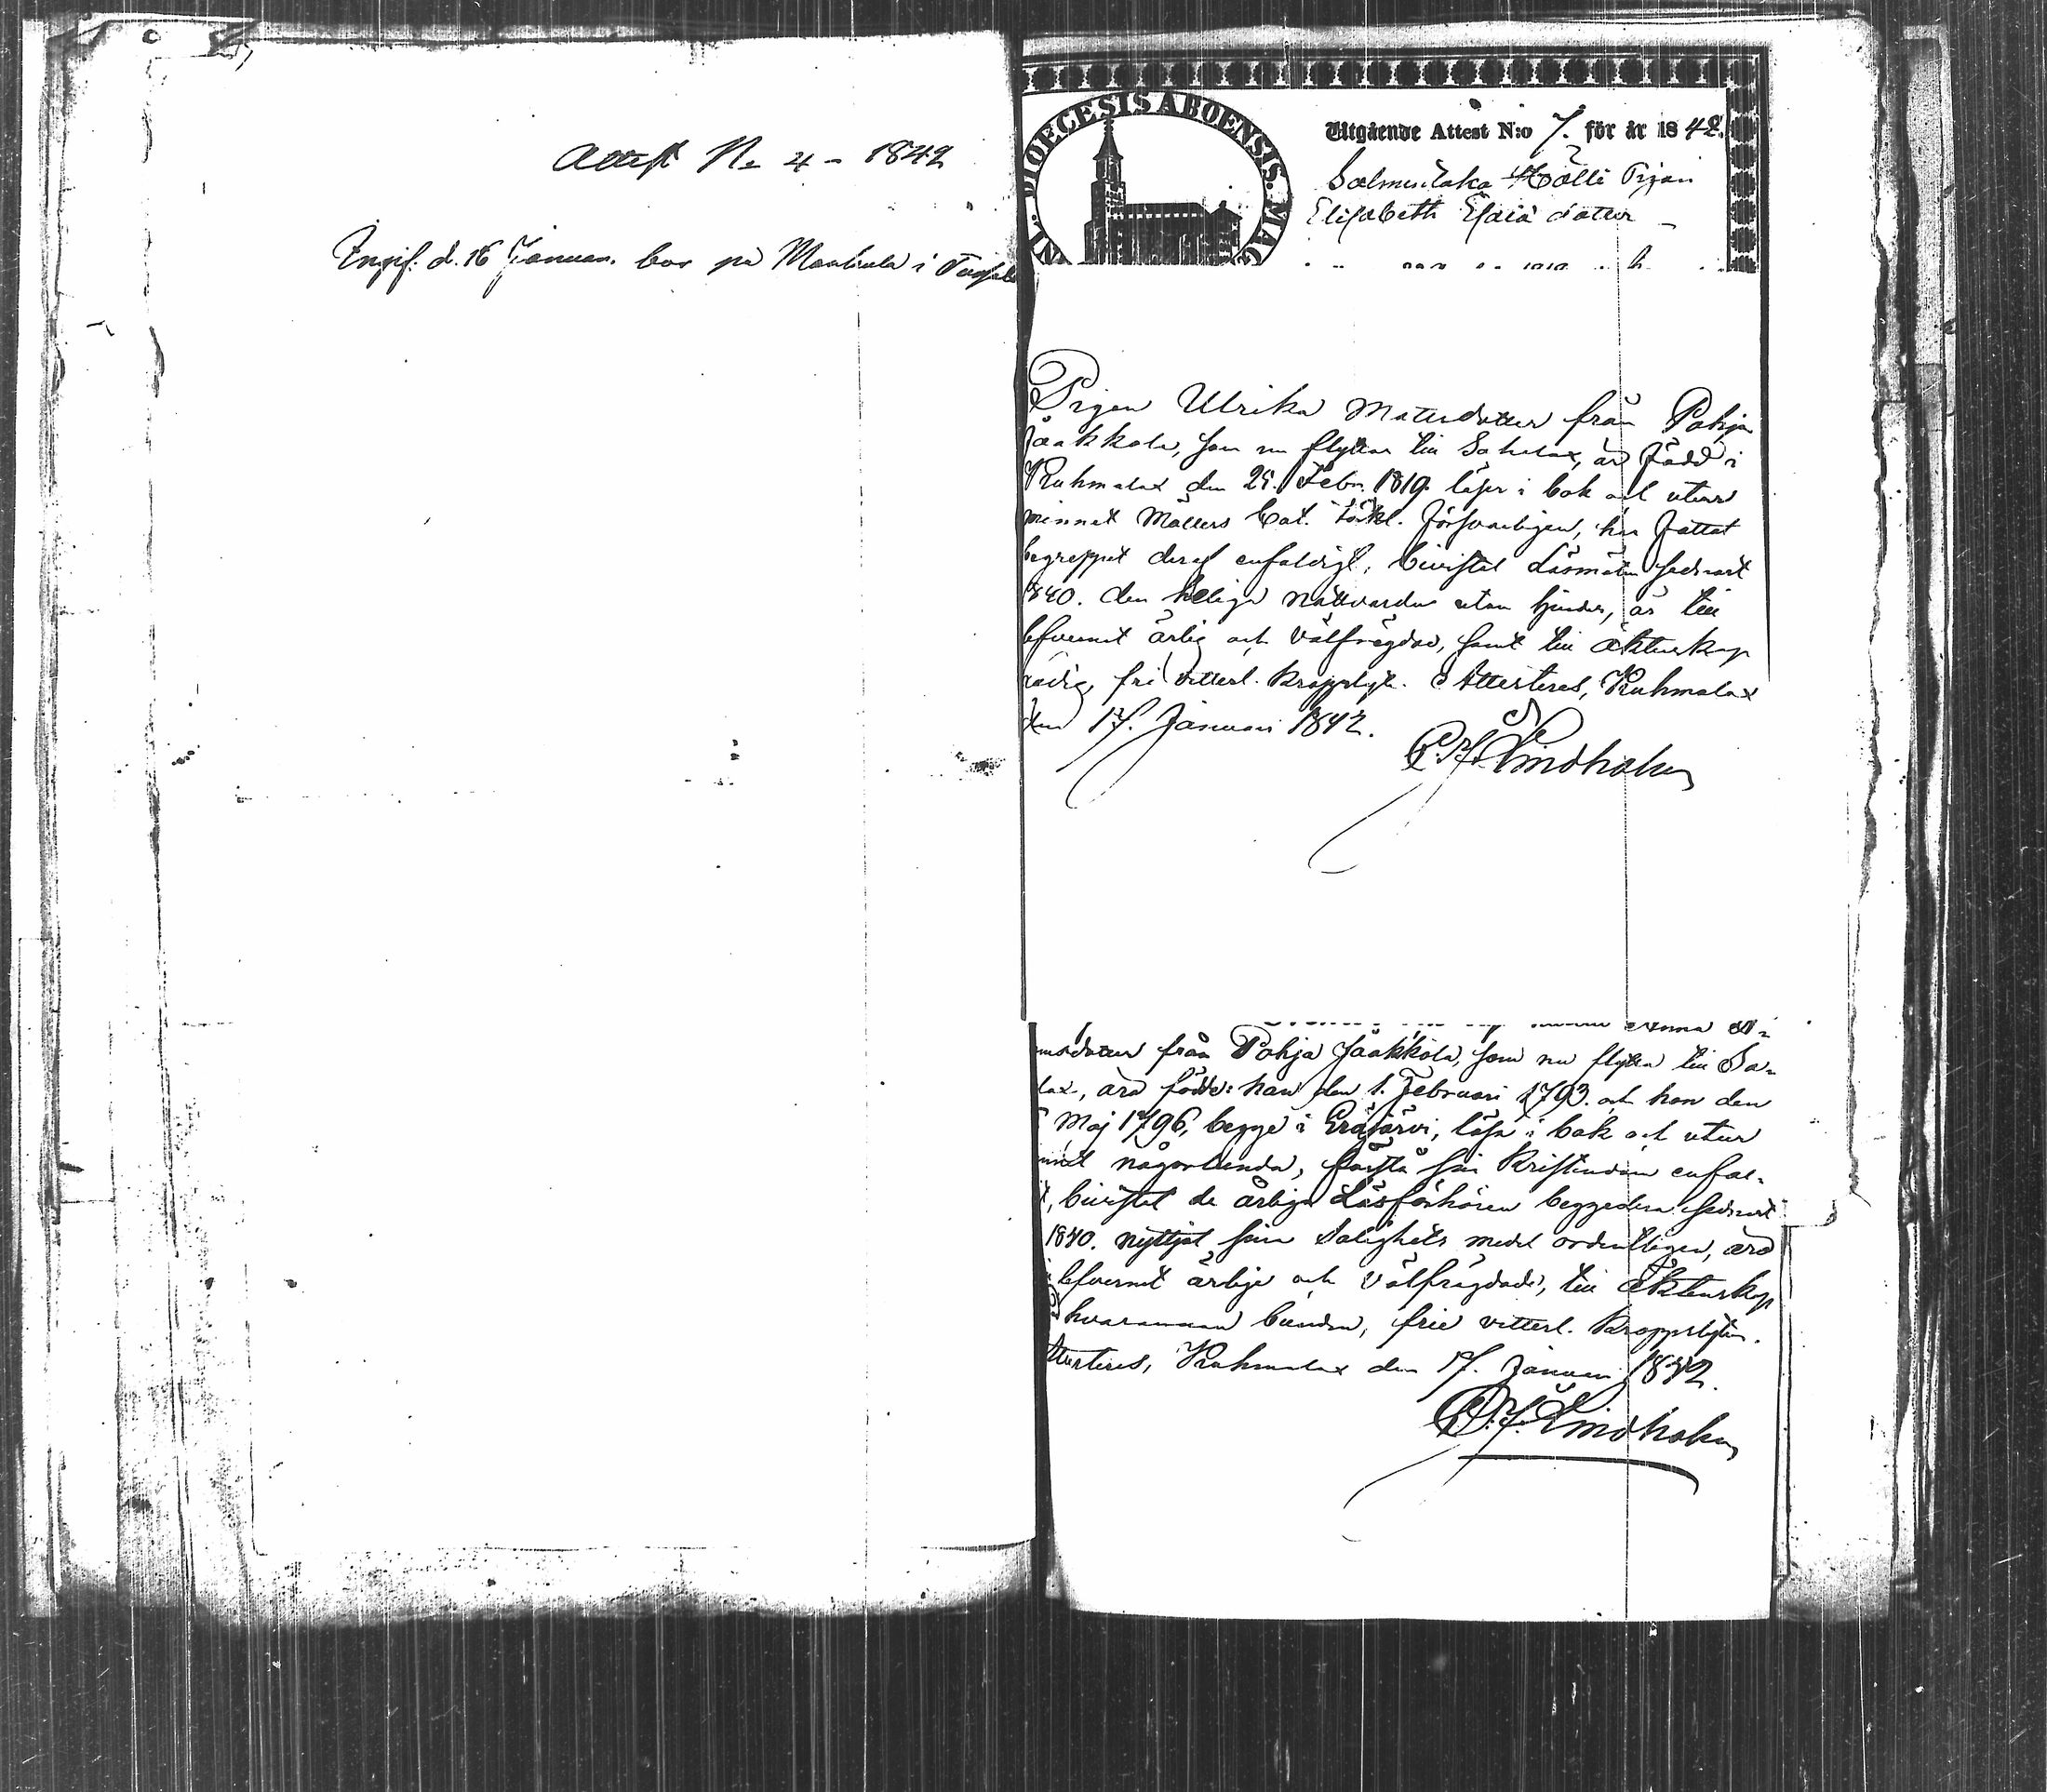 Attest No 4 - 1842
Ingif. d. 16 Januari. bor på i
DIOECESIS ABOENSIS. MAG
Utgående Attest N:o 7. för år 1842.
Salmentaka Hölli Pigan
Elisabeth Esaiæ dotter
Pigan Ulrika Matsdotter från Pohja
Jaakkola, som nu flyttar till Sahalax, är född i
Kuhmalax den 25. Febr. 1819. läser i bok och utur
minnet Möllers Cat. förkl. försvarligen, har fattat
begreppet deraf enfaldigt, bivistat Läsmöten sednast
1840. den heliga nattvarden utan hinder, är till
lefvernet ärlig och välfrägdad, samt till äktenskap
ledig, fri vitterl. kroppslyte. Attesteras, Kuhmalax
den 17. Januari 1842.
Lindholm
Anna
msdotter från Pohja Jaakkola, som nu flytta till Sa-
lax, äro födde: han den 1. Februari 1793. och hon den
Maj 1796, begge i Eräjärvi, läsa i bok och utur
minnet någorlunda, förstå sin Kristendom enfal-
t, bivistat de årliga Läsförhören beggedera sednast
1840. nyttjat sina Salighets medel ordentligen, äro
lefvernet ärlige och välfrägdade, till äktenskap
hvarannan bundne, frie vitterl. kroppslyten.
Attesteras, Kuhmalax den 17. Januari 1842.
Lindholm